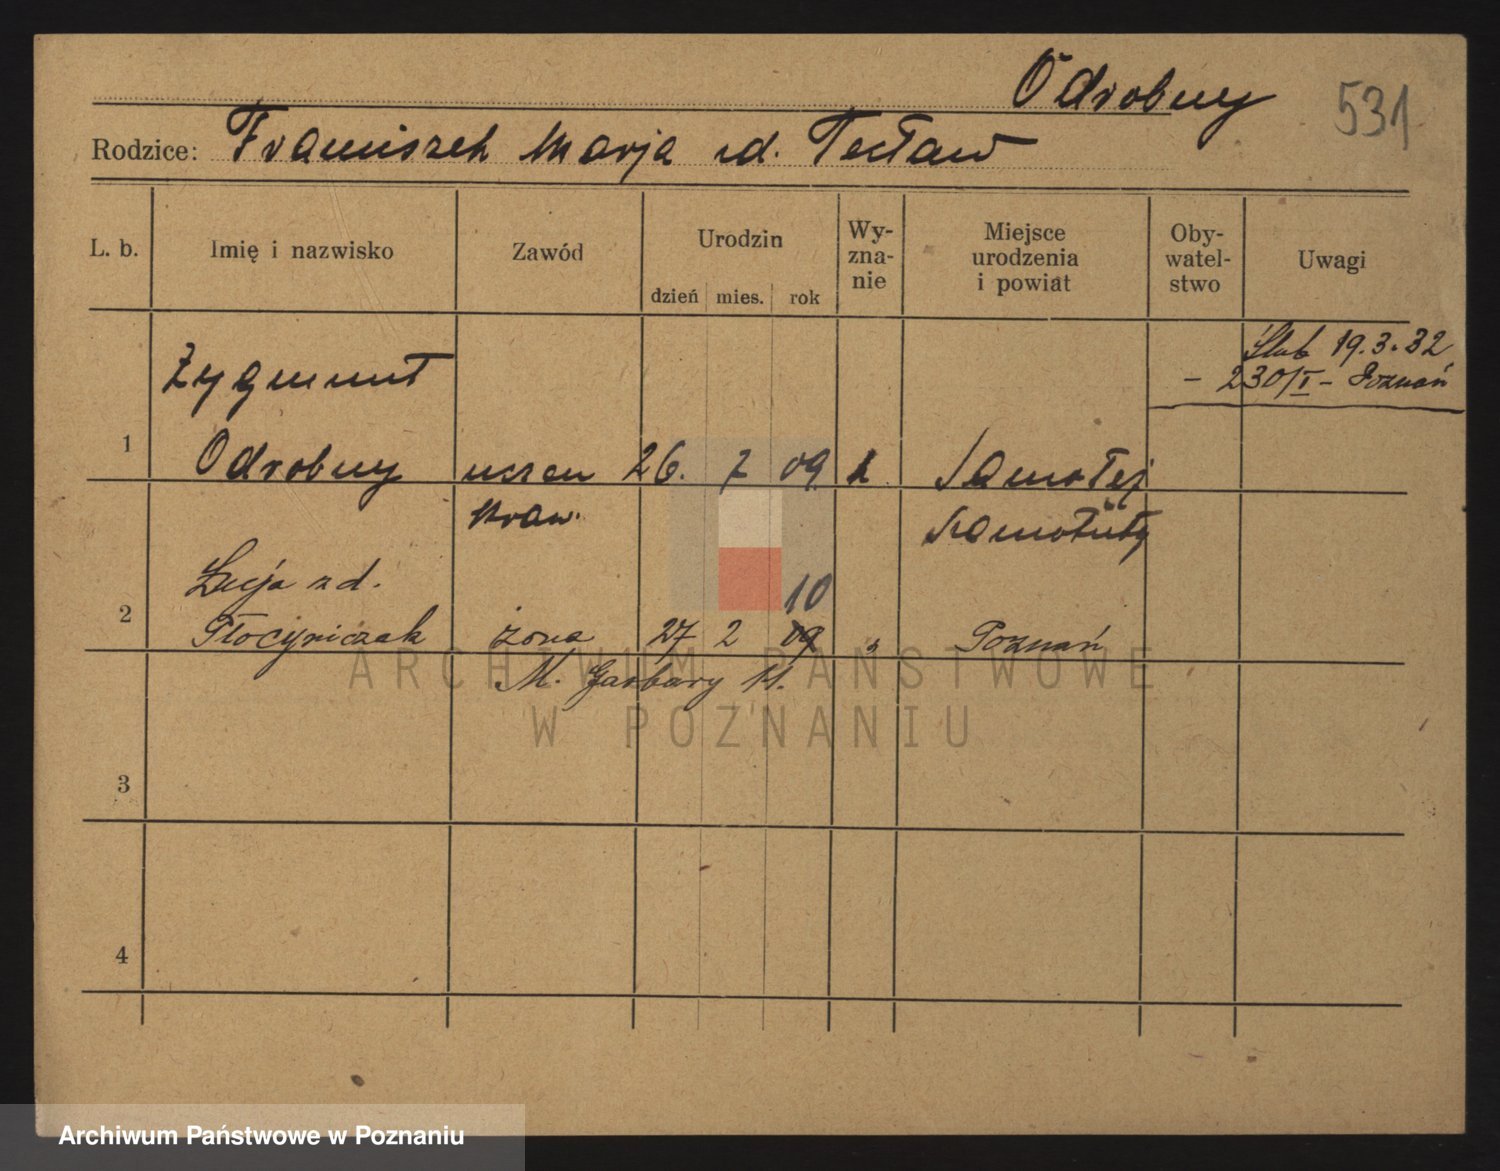 Odrobny 531
Rodzice: Franciszek Marja zd. Tecław
L. b. Imię i nazwisko Zawód Urodzin dzień mies. rok Wy-zna-nie Miejsce urodzenia i powiat Oby-watel-stwo Uwagi
Ślub 19.3.32
– 230/I – Poznań
Zygmunt
1 Odrobny uczeń 26. 7 09. k Samołęż
kraw. Szamotuły
Łucja zd. 10
2 Płócyniczak żona 27 2 09 " Poznań
M. Garbary 11.
3
4
ARCHIWUM PAŃSTWOWE
W POZNANIU
Archiwum Państwowe w Poznaniu